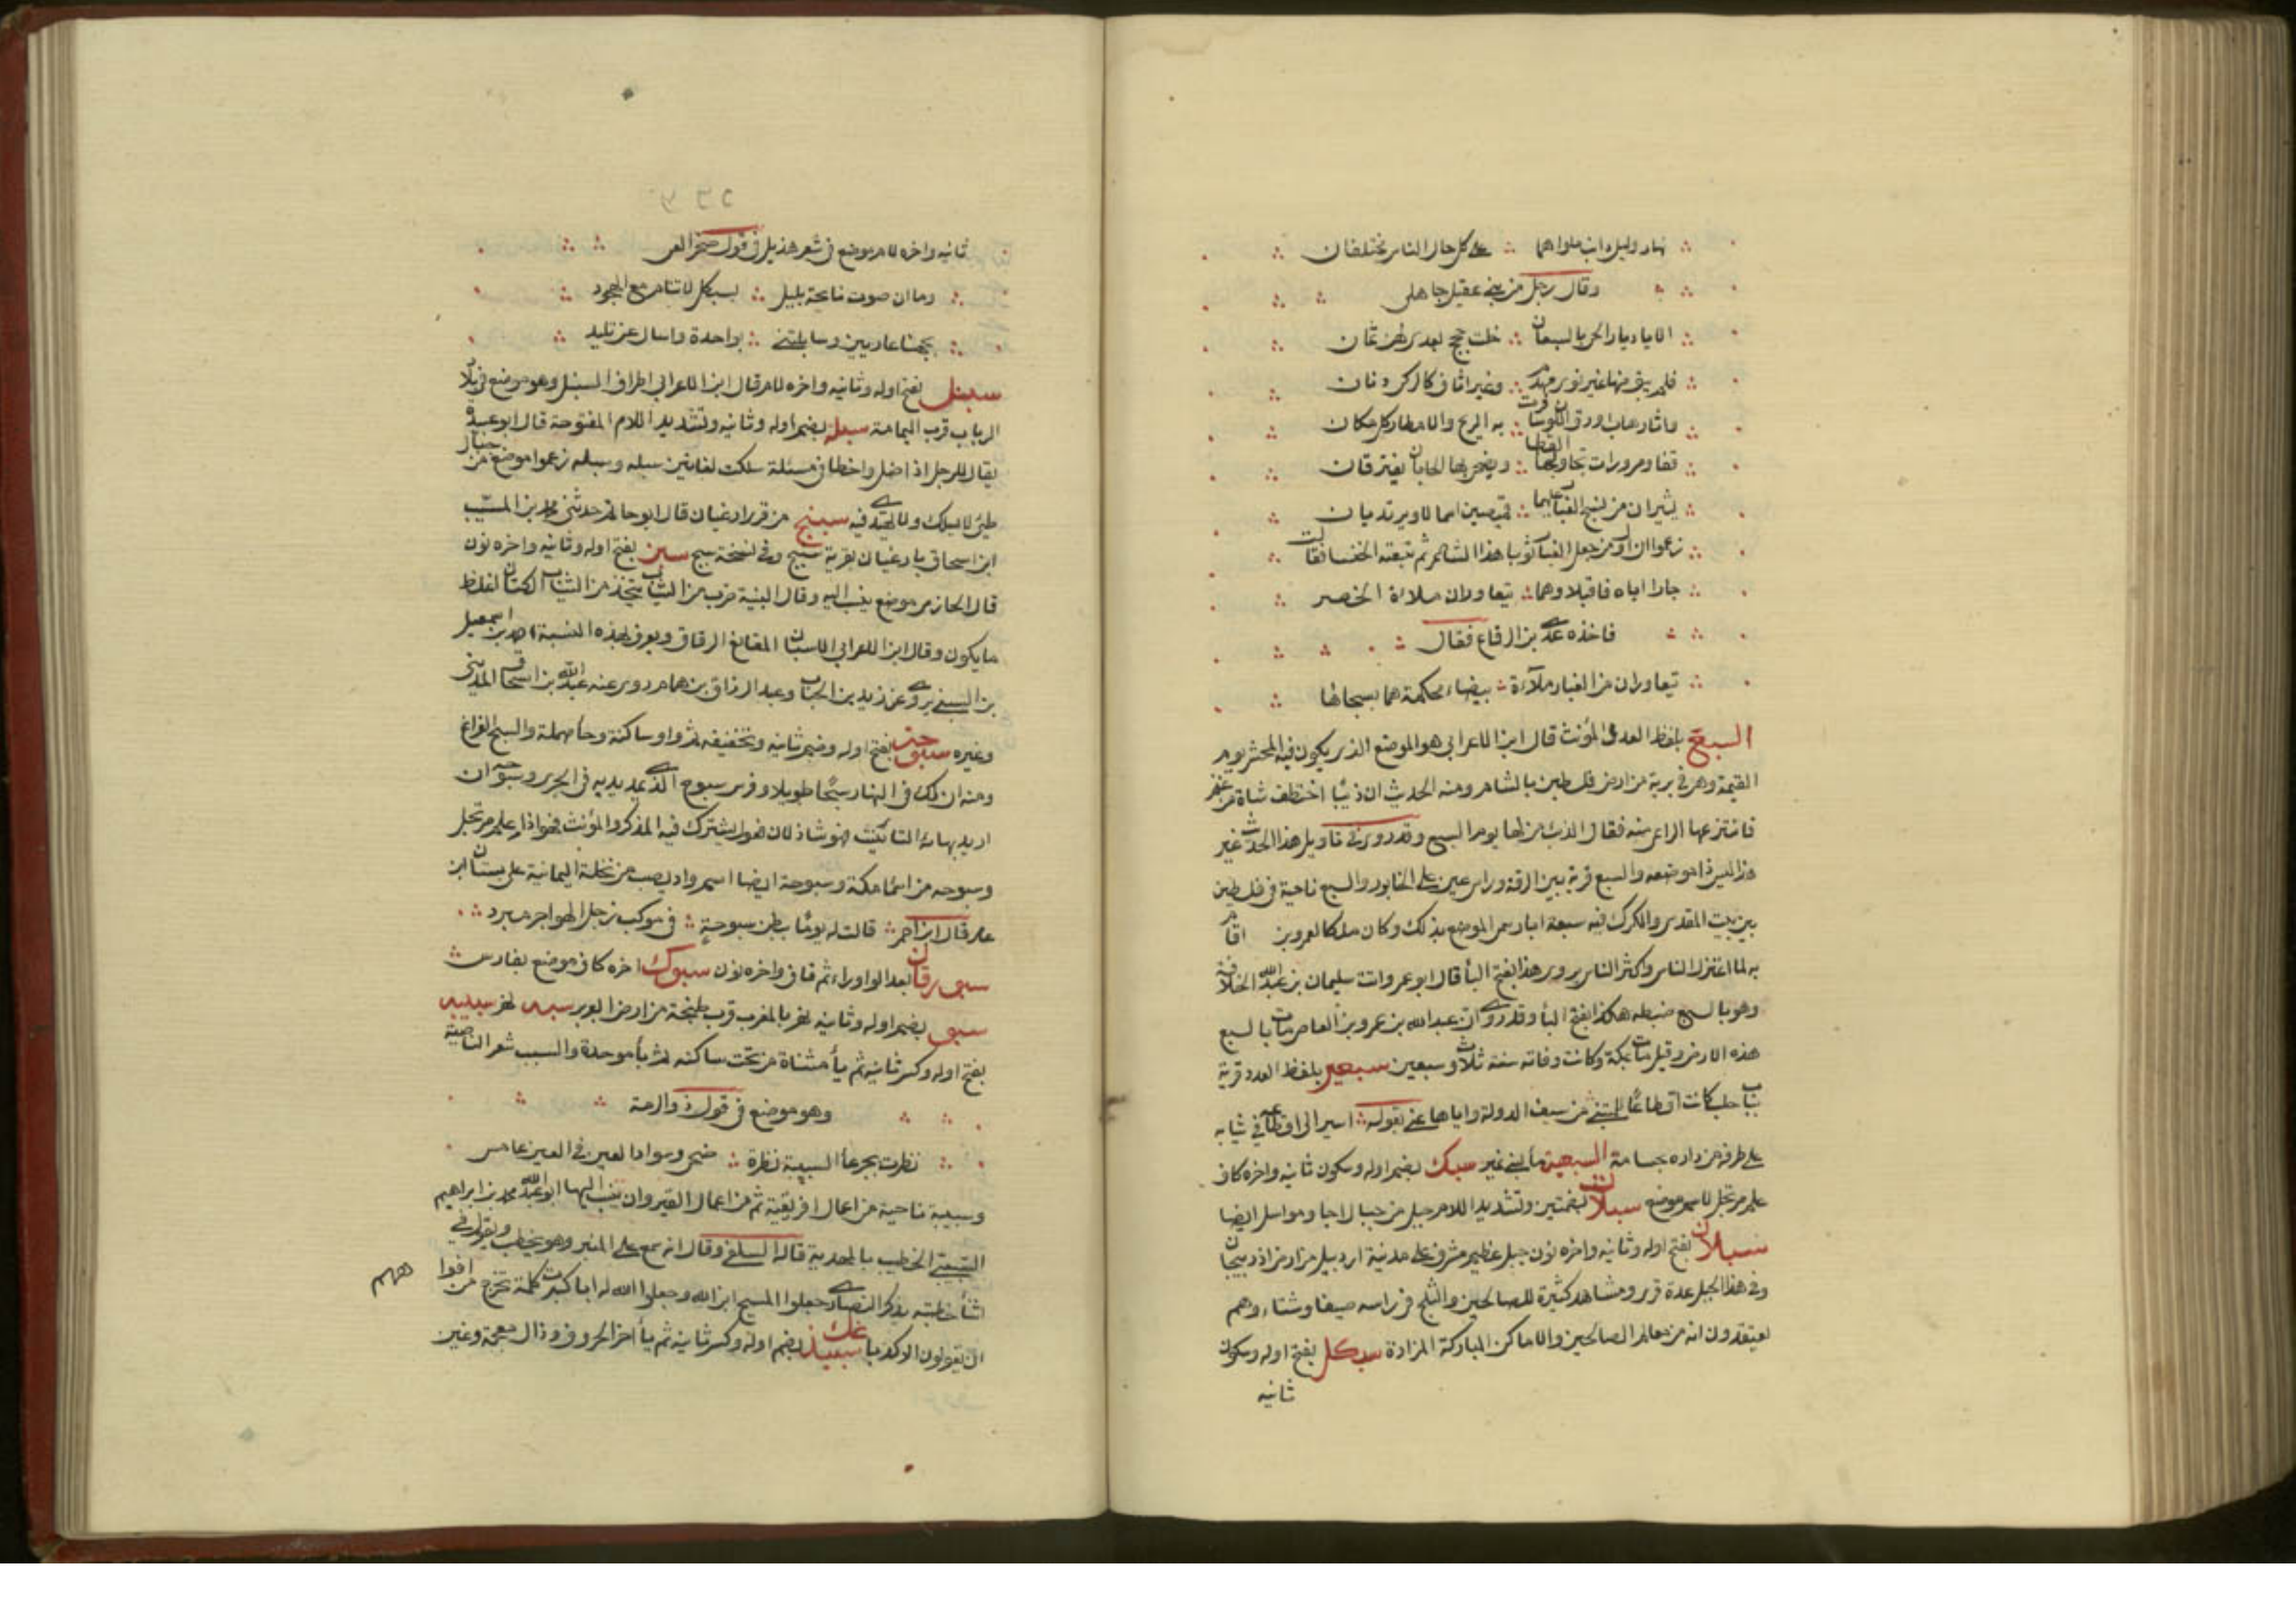 نهار وليل دائب ملواهما على كل حال الناس يختلفان
وقال رجل من بني عقيل جاهلي
الا يا ديار الحي بالسبعان خلت حجج بعدي لهن ثمان
فلم يبق منها غير نوي مهدم وغير اثاف كالركي دفان
واثار هاب اورق اللون سافرت به الريح والامطار كل مكان
قفار ومرورات تحاربها القطا ويضحي بها الجابان يفترقان
يثيران من نسج الغبار عليهما قميصين اسمالا ويرتديان
زعموا ان اول من جعل الغبار ثوبا هذا الشاعر ثم تبعته الخنسا فقالت
جارا اباه فاقبلا وهما يتعاوران ملاءة الحضر
فاخذه عدي بن الرقاع فقال
يتعاوران من الغبار ملآءة بيضاء محكمة هما نسجاها
السبع بلفظ العدد المؤنث قال ابن الاعرابي هو الموضع الذي يكون فيه المحشر يوم
القيمة وهو في برية من ارض فلسطين بالشام ومنه الحديث ان ذئبا اختطف شاة من غنم
فانتزعها الراعي منه فقال الذئب من لها يوم السبع وقد روي في تاويل هذا الحديث غير
هذا ليس ذا موضعه والسبع قرية بين الرقة وراس عين على الخابور والسبع ناحية في فلسطين
بين بيت المقدس والكرك فيه سبعة ابار سمي الموضع بذلك وكان ملكا لعمرو بن اقام
به لما اعتزل الناس واكثر الناس يروي هذا بفتح الباء قال ابو عمرو اتت سليمان بن عبد الله الخلافة
وهو بالسبع ضبطه هكذا بفتح الباء وقد روي ان عبد الله بن عمرو بن العاص مات بالسبع
هذه الارض وقيل مات بمكة وكانت وفاته سنة ثلاث وسبعين سبعين بلفظ العدد قرية
بباب حلب كانت اقطاعا للمتنبي من سيف الدولة واياها عنى بقوله اسير الى اقطاعه في ثيابه
على طرفه من داره بحسامه السبعية ماء لبني نمير سبك بضم اوله وسكون ثانيه واخره كاف
علم مرتجل لاسم موضع سبلات بضمتين وتشديد اللام جبل من جبال اجا ومواسل ايضا
سبلان بفتح اوله وثانيه واخره نون جبل عظيم مشرف على مدينة اردبيل من ارض اذربيجان
وفي هذا الجبل عدة قرى ومشاهد كثيرة للصالحين والثلج في راسه صيفا وشتاء وهم
يعتقدون انه من معالم الصالحين والاماكن المباركة المزارة سبكل بفتح اوله وسكون
ثانيه
ثانيه واخره لام موضع في شعر هذيل في قول صخر الغي
وما ان صوت نايحة بليل بسبكل لا تنام مع الهجود
تجهنا عاديين وسايلتني بواحدة واسال عن تليد
سبل بفتح اوله وثانيه واخره لام قال ابن الاعرابي اطراف السنبل وهو موضع في بلاد
الرباب قرب اليمامة سبله بضم اوله وثانيه وتشديد اللام المفتوحة قال ابو عبيدة
يقال للرجل اذا ضل واخطا في مسئلة سلكت لغانين سبله وسبله زعموا موضع من جبال
طيئ لا يسلك ولا يهتدى فيه سبنج من قرى ارغيان قال ابو حاتم حدثني محمد بن المسيب
ابن اسحاق بارغيان بقرية سبنج وفي نسخة سبج سبن بفتح اوله وثانيه واخره نون
قال الحازمي موضع ينسب اليه وقال البنية ضرب من الثياب يتخذ من الثياب الكتان اغلظ
ما يكون وقال ابن الاعرابي الاسبان المقانع الرقاق ويعرف بهذه النسبة احمد بن اسمعيل
بن السبني يروي عن زيد بن الحباب وعبد الرزاق بن همام روى عنه عبد الله بن اسحاق المديني
وغيره سبوحة بفتح اوله وضم ثانيه وتخفيفه ثم واو ساكنة وحاء مهملة والسبح الفراغ
ومنه ان لك في النهار سبحا طويلا وفرس سبوح الذي يمد يديه في الجري وسبوحة ان
اريد بهاء التانيث فهو شاذ لان فعول يشترك فيه المذكر والمؤنث فهو اذا علم مرتجل
وسبوحه من اسماء مكة وسبوحة ايضا اسم واد يصب من نخلة اليمانية على بستان ابن
عامر قال ابن احمر قالت له يوما ببطن سبوحة في موكب زجل الهواجر مبرد
سبورقان بعد الواو راء ثم قاف واخره نون سبوك اخره كاف موضع بفارس
سبو بضم اوله وثانيه نهر بالمغرب قرب طنجة من ارض البربر سبه نهر سبيبه
بفتح اوله وكسر ثانيه ثم ياء مثناة من تحت ساكنه ثم باء موحدة والسبب شعر الناصية
وهو موضع في قول ذو الرمة
نظرت بجرعاء السبيبة نظرة ضحى وسواد العين في العين غامس
وسبيبة ناحية من اعمال افريقية ثم من اعمال القيروان ينسب اليها ابو عبد الله محمد بن ابراهيم
السبيبي الخطيب بالمهدية قاله السلفي وقال انه سمع على المنبر وهو يخطب ويقول في
اثناء خطبته يذكر النصارى جعلوا المسيح ابن الله وجعلوا الله له ابا كبرت كلمة تخرج من افواههم
ان يقولون الا كذبا سبيذغك بضم اوله وكسر ثانيه ثم ياء اخر الحروف وذال معجمة وغين